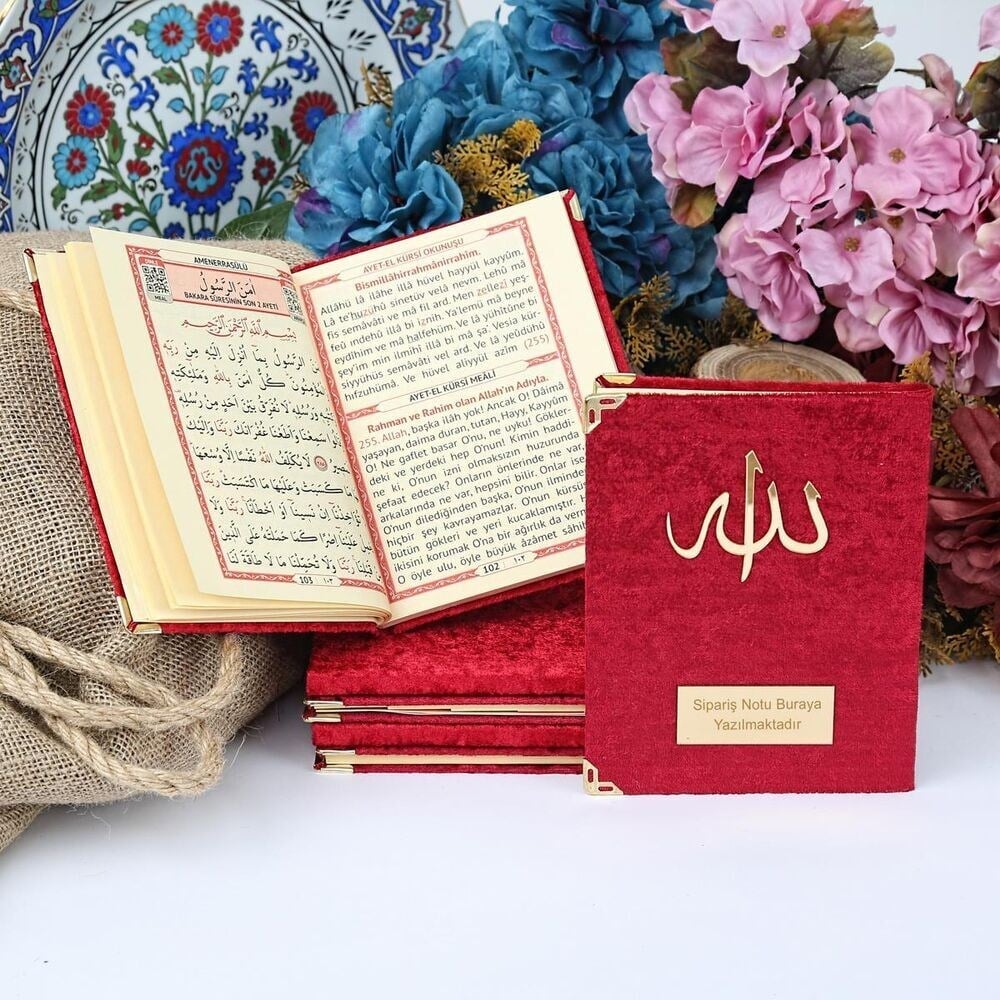 AMENERRASÛLÜ
DİNLE
MEAL
اٰمَنَ الرَّسُولُ
BAKARA SÛRESİNİN SON 2 AYETİ
بِسْمِ اللّٰهِ الرَّحْمٰنِ الرَّحِيمِ
الرَّسُولُ بِمَٓا اُنْزِلَ اِلَيْهِ مِنْ رَبِّهِ
كُلٌّ اٰمَنَ بِاللّٰهِ وَمَلٰٓئِكَتِهِ
وَرُسُلِهِ لَا نُفَرِّقُ بَيْنَ اَحَدٍ مِنْ رُسُلِهِ
سَمِعْنَا وَاَطَعْنَا غُفْرَانَكَ رَبَّنَا وَاِلَيْكَ
لَا يُكَلِّفُ اللّٰهُ نَفْسًا اِلَّا وُسْعَهَا
مَا كَسَبَتْ وَعَلَيْهَا مَا اكْتَسَبَتْ رَبَّنَا
اِنْ نَسِينَٓا اَوْ اَخْطَأْنَا رَبَّنَا وَلَا
عَلَيْنَٓا اِصْرًا كَمَا حَمَلْتَهُ عَلَى الَّذِينَ
قَبْلِنَا رَبَّنَا وَلَا تُحَمِّلْنَا مَا لَا طَاقَةَ لَنَا
103 ١٠٣
AYET-EL KÜRSİ OKUNUŞU
Bismillâhirrahmânirrahim.
Allâhü lâ ilâhe illâ hüvel hayyül kayyûm.
Lâ te'huzuhû sinetüv velâ nevm. Lehû mâ
fis semâvâti ve mâ fil ard. Men zellezi yeş-
feû ındehû illâ bi iznih. Ya'lemü mâ beyne
eydîhim ve mâ halfehüm. Ve lâ yühîtûne bi
şey'im min ilmihî illâ bi mâ şa'. Vesia kür-
siyyühüs semâvâti vel ard. Ve lâ yeûdühû
hıfzuhümâ. Ve hüvel aliyyül azîm (255)
AYET-EL KÜRSİ MEÂLİ
Rahman ve Rahim olan Allah'ın Adıyla.
255. Allah, başka ilâh yok! Ancak O! Dâimâ
yaşayan, daima duran, tutan, Hayy, Kayyûm
O! Ne gaflet basar O'nu, ne uyku! Gökler-
deki ve yerdeki hep O'nun! Kimin haddi-
ne ki, O'nun izni olmaksızın huzurunda
şefaat edecek? Onların önlerinde ne var,
arkalarında ne var, hepsini bilir. Onlar ise
O'nun dilediğinden başka, O'nun ilminden
hiçbir şey kavrayamazlar. O'nun kürsüsü
bütün gökleri ve yeri kucaklamıştır.
ikisini korumak O'na bir ağırlık da vermez
O öyle ulu, öyle büyük âzâmet sâhibi
102 ١٠٢
الله
Sipariş Notu Buraya
Yazılmaktadır